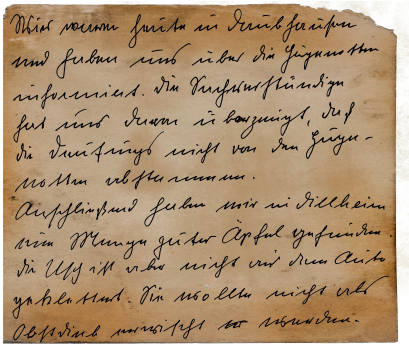 Wir waren heute in Daubhausen
und haben uns über die Hugenotten
informiert. Die Sachverständige
hat uns davon überzeugt, daß
die nicht von den Huge-
notten abstammen.
Anschließend haben wir in Dillheim
eine Menge guter Äpfel gefunden.
die ist aber nicht auf dem Auto
geklettert. Sie wollte nicht als
Obstdieb erwischt werden.